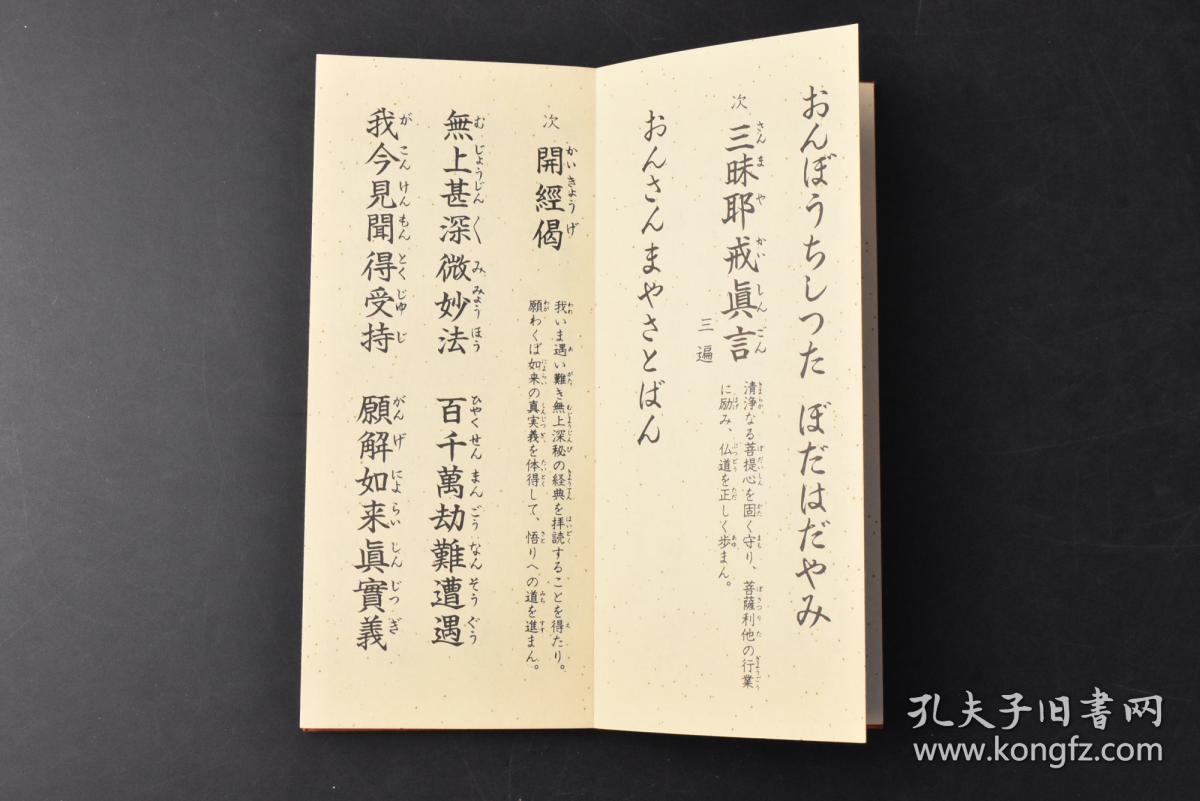 おんぼうちしつた ぼだはだやみ
次 三昧耶戒眞言 三遍
清浄なる菩提心を固く守り、菩薩利他の行業
に励み、仏道を正しく歩まん。
おんさんまやさとばん
次 開經偈
我いま遇い難き無上深秘の経典を拝読することを得たり。
願わくば如来の真実義を体得して、悟りへの道を進まん。
無上甚深微妙法 百千萬劫難遭遇
我今見聞得受持 願解如来眞實義
孔夫子旧书网
www.kongfz.com